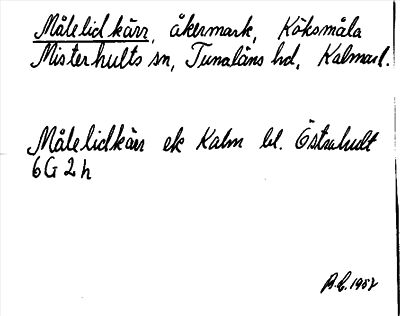 Målelidkärr, åkermark, Köksmåla
Misterhults sn, Tunaläns hd, Kalmar l.
Målelidkärr ek Kalm bl. Östrahult
6G 2h
1957